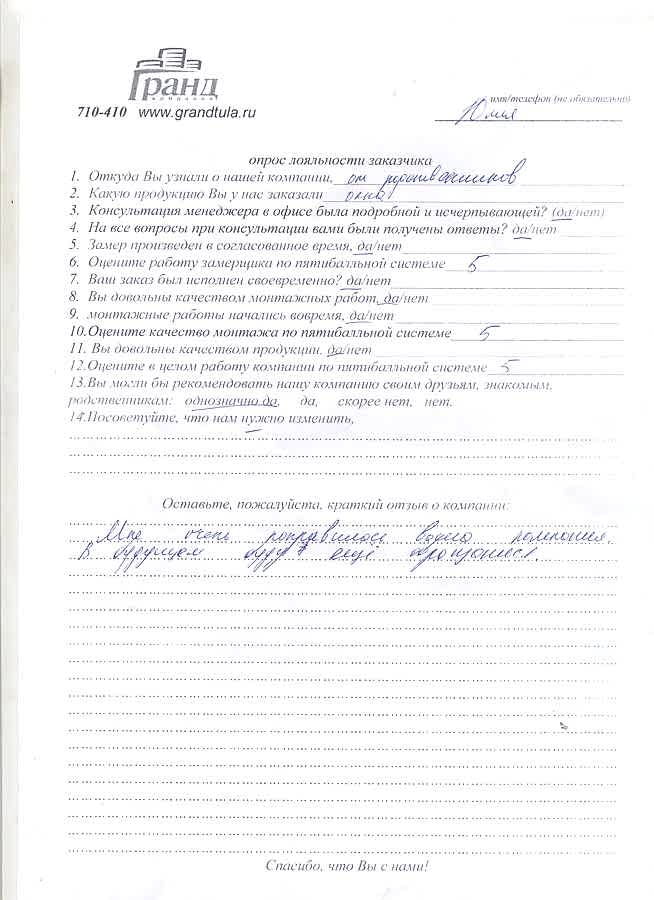 Гранд
компания
710-410 www.grandtula.ru
имя/телефон (не обязательно)
Юлия
опрос лояльности заказчика
1. Откуда Вы узнали о нашей компании, от родственников
2. Какую продукцию Вы у нас заказали окна
3. Консультация менеджера в офисе была подробной и исчерпывающей? (да/нет)
4. На все вопросы при консультации вами были получены ответы? да/нет
5. Замер произведен в согласованное время, да/нет
6. Оцените работу замерщика по пятибалльной системе 5
7. Ваш заказ был исполнен своевременно? да/нет
8. Вы довольны качеством монтажных работ, да/нет
9. монтажные работы начались вовремя, да/нет
10.Оцените качество монтажа по пятибалльной системе 5
11. Вы довольны качеством продукции, да/нет
12.Оцените в целом работу компании по пятибалльной системе 5
13.Вы могли бы рекомендовать нашу компанию своим друзьям, знакомым,
родственникам: однозначно да, да, скорее нет, нет.
14.Посоветуйте, что нам нужно изменить,
Оставьте, пожалуйста, краткий отзыв о компании:
Мне очень понравилась Ваша компания.
В будущем буду ещё обращаться.
Спасибо, что Вы с нами!